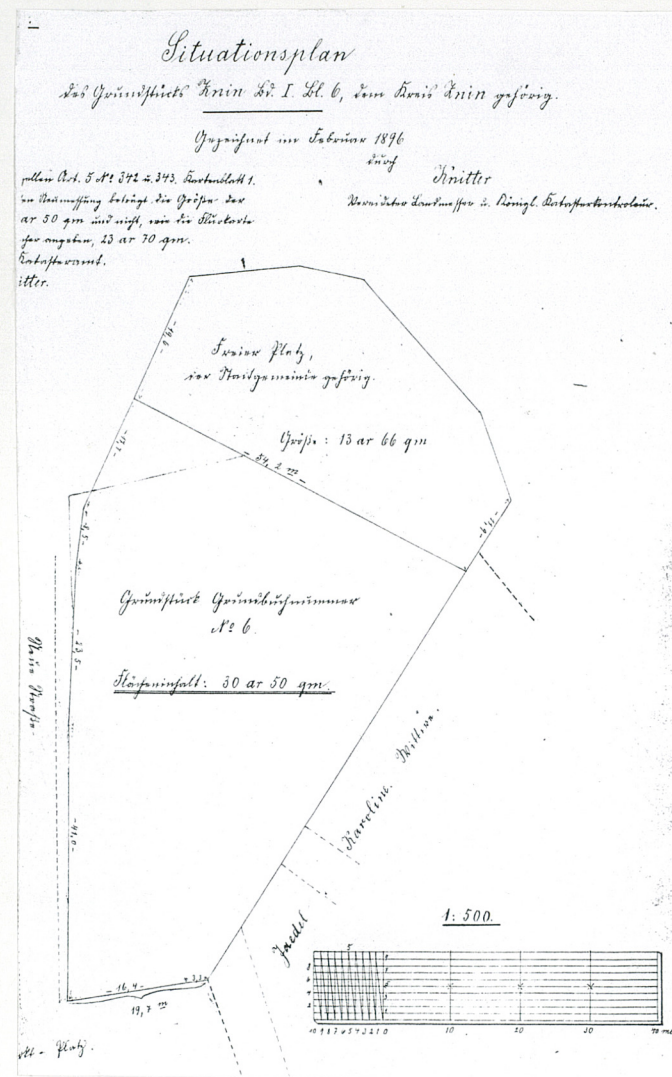 Situationsplan
des Grundstücks Znin Bd. I. Bl. 6, dem Kreis Znin gehörig.
Gezeichnet im Februar 1896
durch
Knitter
Vereideter Landmesser u. Königl. Katasterkontroleur.
Art. 5 No 342 u. 343. Kartenblatt 1.
Neumessung beträgt die Größe der
ar 50 qm und nicht, wie die Flurkarte
angeben, 23 ar 70 qm.
Katasteramt.
itter.
Freier Platz,
der Stadtgemeinde gehörig.
Größe: 13 ar 66 qm
- 19,6 -
- 17,7 -
- 54,2 m -
- 11,9 -
- 8,5 -
- 23,5 -
Grundstück Grundbuchnummer
No 6.
Flächeninhalt: 30 ar 50 qm.
Neue Straße.
- 41,0 -
Karoline Wittwe.
Jaedel
1:500.
- 16,4 -
3,3
19,7 m
5
10 9 8 7 6 5 4 3 2 1 0
10
20
30
40 mt
Platz.